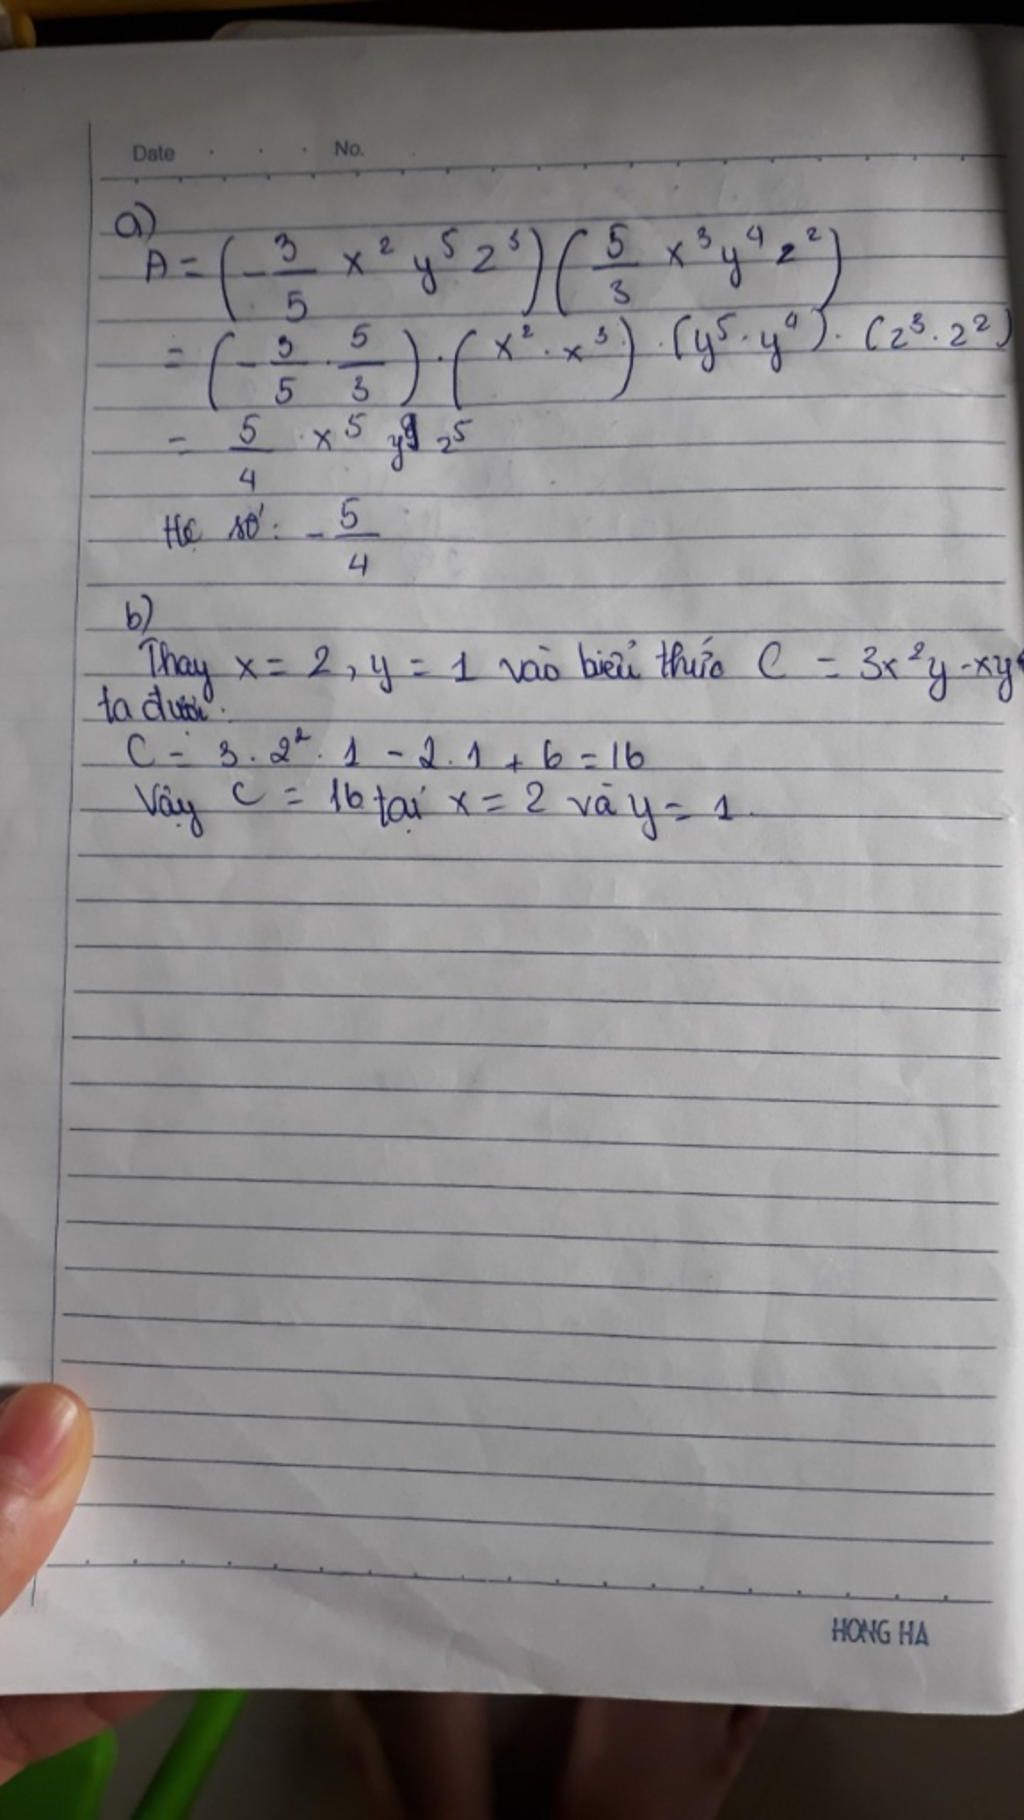 Date No.
a)
A = (-3/5 x² y⁵ z³) (5/3 x³ y⁴ z²)
= (-3/5 . 5/3) . (x² . x³) . (y⁵ . y⁴) . (z³ . z²)
= 5/4 . x⁵ y⁹ z⁵
Hệ số: -5/4
b)
Thay x = 2, y = 1 vào biểu thức C = 3x²y - xy
ta được:
C = 3 . 2² . 1 - 2 . 1 + 6 = 16
Vậy C = 16 tại x = 2 và y = 1.
HONG HA